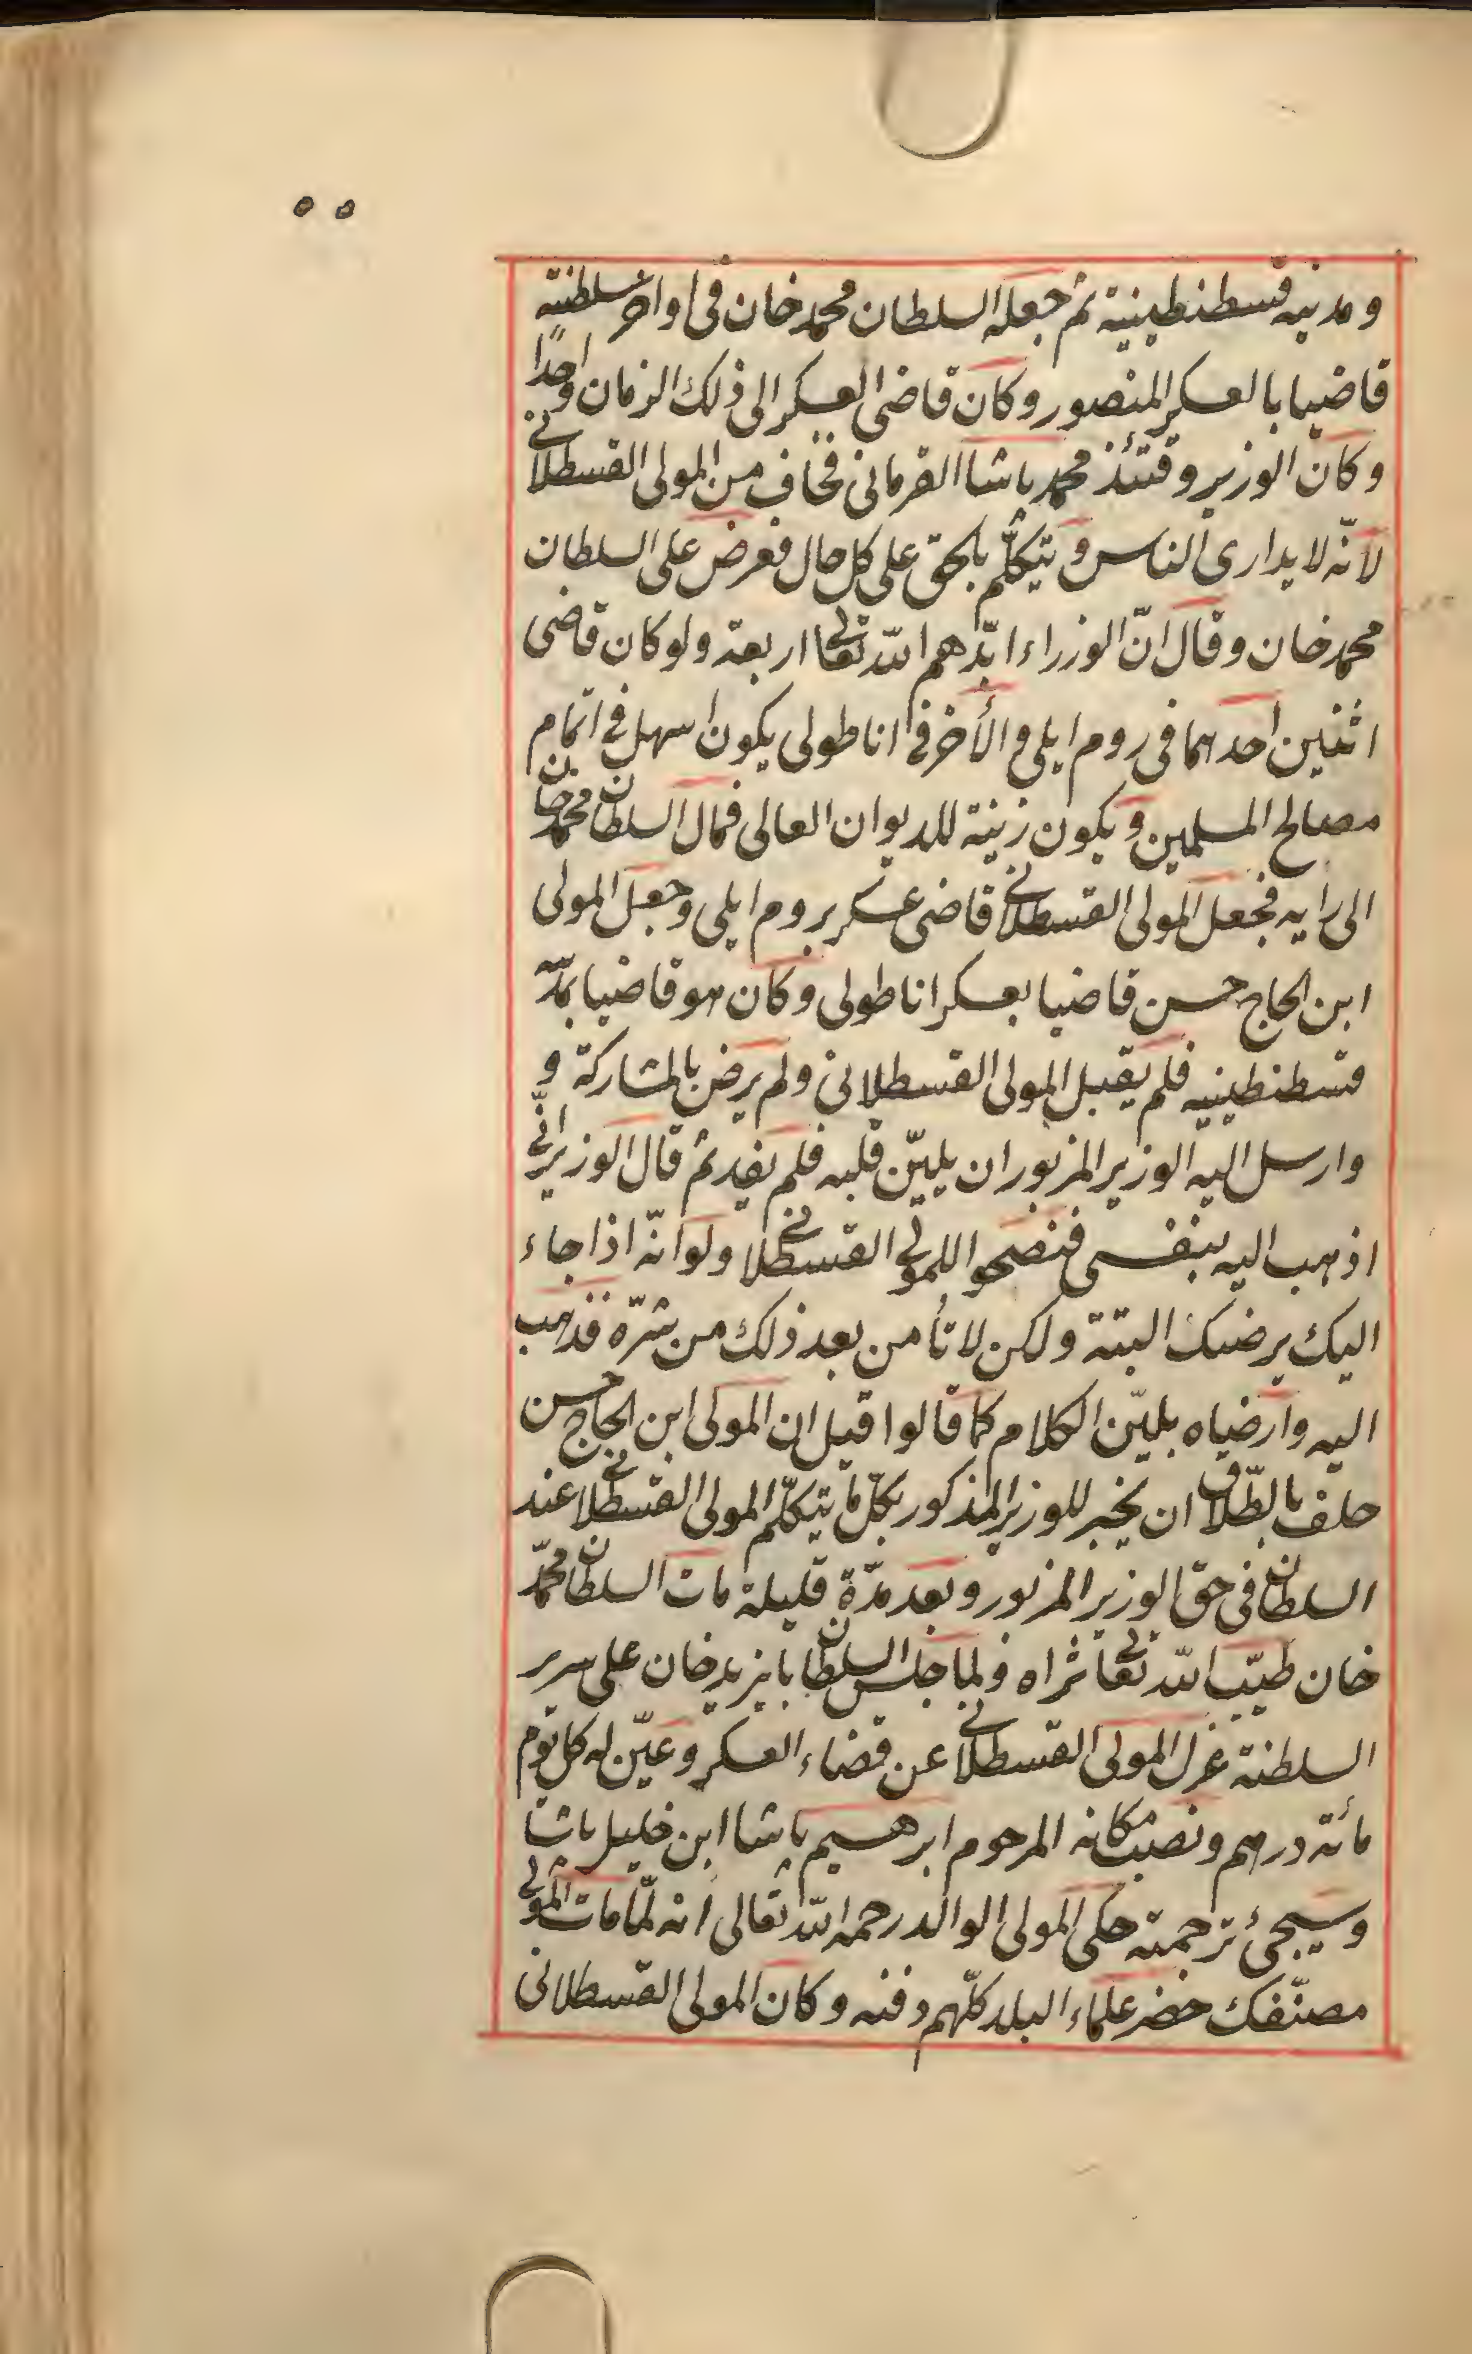 ٥٥
ومدينة قسطنطينية ثم جعله السلطان محمد خان فى اواخر سلطنته
قاضيا بالعسكر المنصور وكان قاضى العسكر الى ذلك الزمان واحدًا
وكان الوزير وقتئذ محمد باشا القرمانى فخاف من المولى القسطلانى
لانّه لا يدارى الناس و يتكلّم بالحق على كل حال فعرض على السلطان
محمد خان وقال انّ الوزراء ايّدهم اللّه تعالى اربعة ولو كان قاضى
اثنين احدهما فى روم ايلى والأخر فى اناطولى يكون اسهل فى اتمام
مصالح المسلمين ويكون زينة للديوان العالى فمال السلطان محمد خان
الى رايه فجعل المولى القسطلانى قاضى عسكر بروم ايلى وجعل المولى
ابن الحاج حسن قاضيا بعسكر اناطولى وكان هو قاضيا بمدينة
قسطنطينيه فلم يقبل المولى القسطلانى ولم يرض بالمشاركة و
وارسل اليه الوزير المزبور ان يليّن قلبه فلم يفد ثم قال الوزير انّى
اذهب اليه بنفسى فنصحوا للمولى القسطلانى ولو انّه اذا جاء
اليك يرضيك البتة ولكن لا تأمن بعد ذلك من شرّه فذهب
اليه وارضاه بليّن الكلام كما قالوا قيل ان المولى ابن الحاج حسن
حلف بالطّلاق ان يخبر للوزير المذكور بكلّ ما يتكلّم المولى القسطلانى عند
السلطان فى حق الوزير المزبور وبعد مدّة قليلة مات السلطان محمّد
خان طيّب اللّه تعالى ثراه ولما جلس السلطان بايزيد خان على سرير
السلطنة عزل المولى القسطلانى عن قضاء العسكر وعيّن له كل يوم
مائة درهم ونصب مكانه المرحوم ابرهيم باشا ابن خليل باشا
وسيجئ ترجمته حكى المولى الوالد رحمه اللّه تعالى انه لمّا مات المولى
مصنّفك حضر علماء البلد كلّهم دفنه وكان المولى القسطلانى